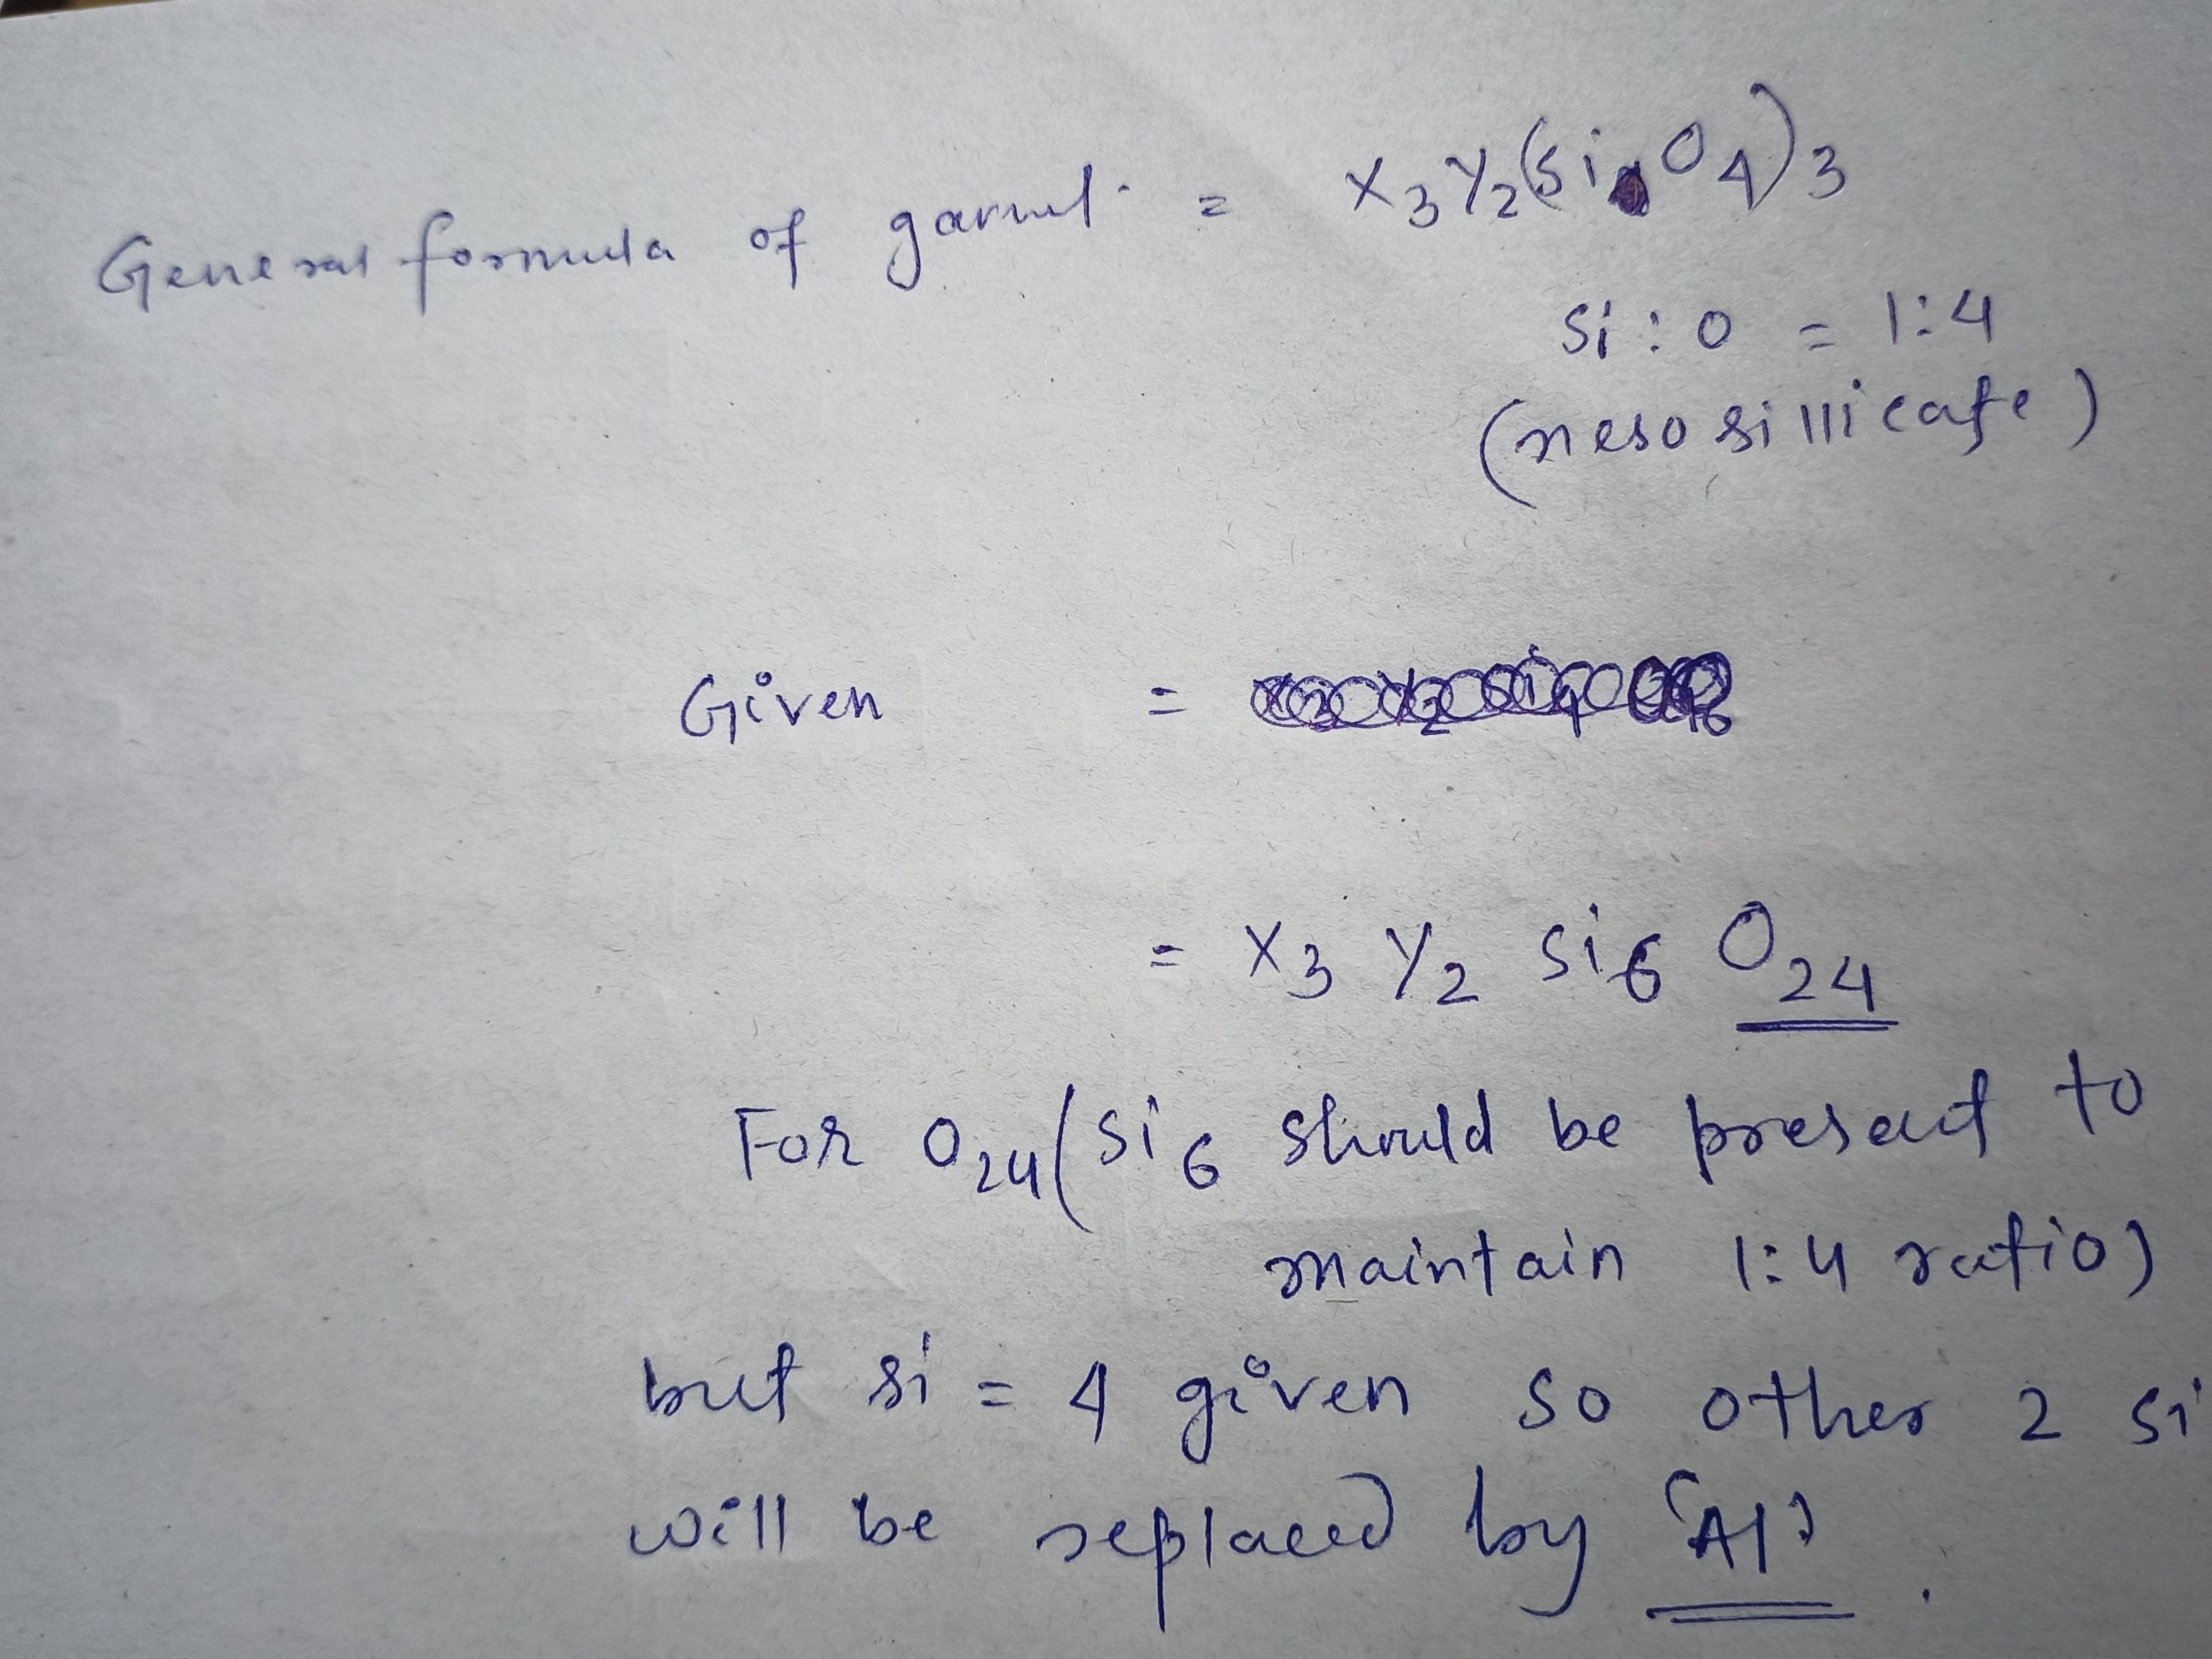 General formula of garnet = X3Y2(SiO4)3
Si : O = 1:4
(nesosillicate)
Given =
= X3 Y2 Si6 O24
For O24 (Si6 should be present to
maintain 1:4 ratio)
but si = 4 given so other 2 si
will be replaced by 'Al'.